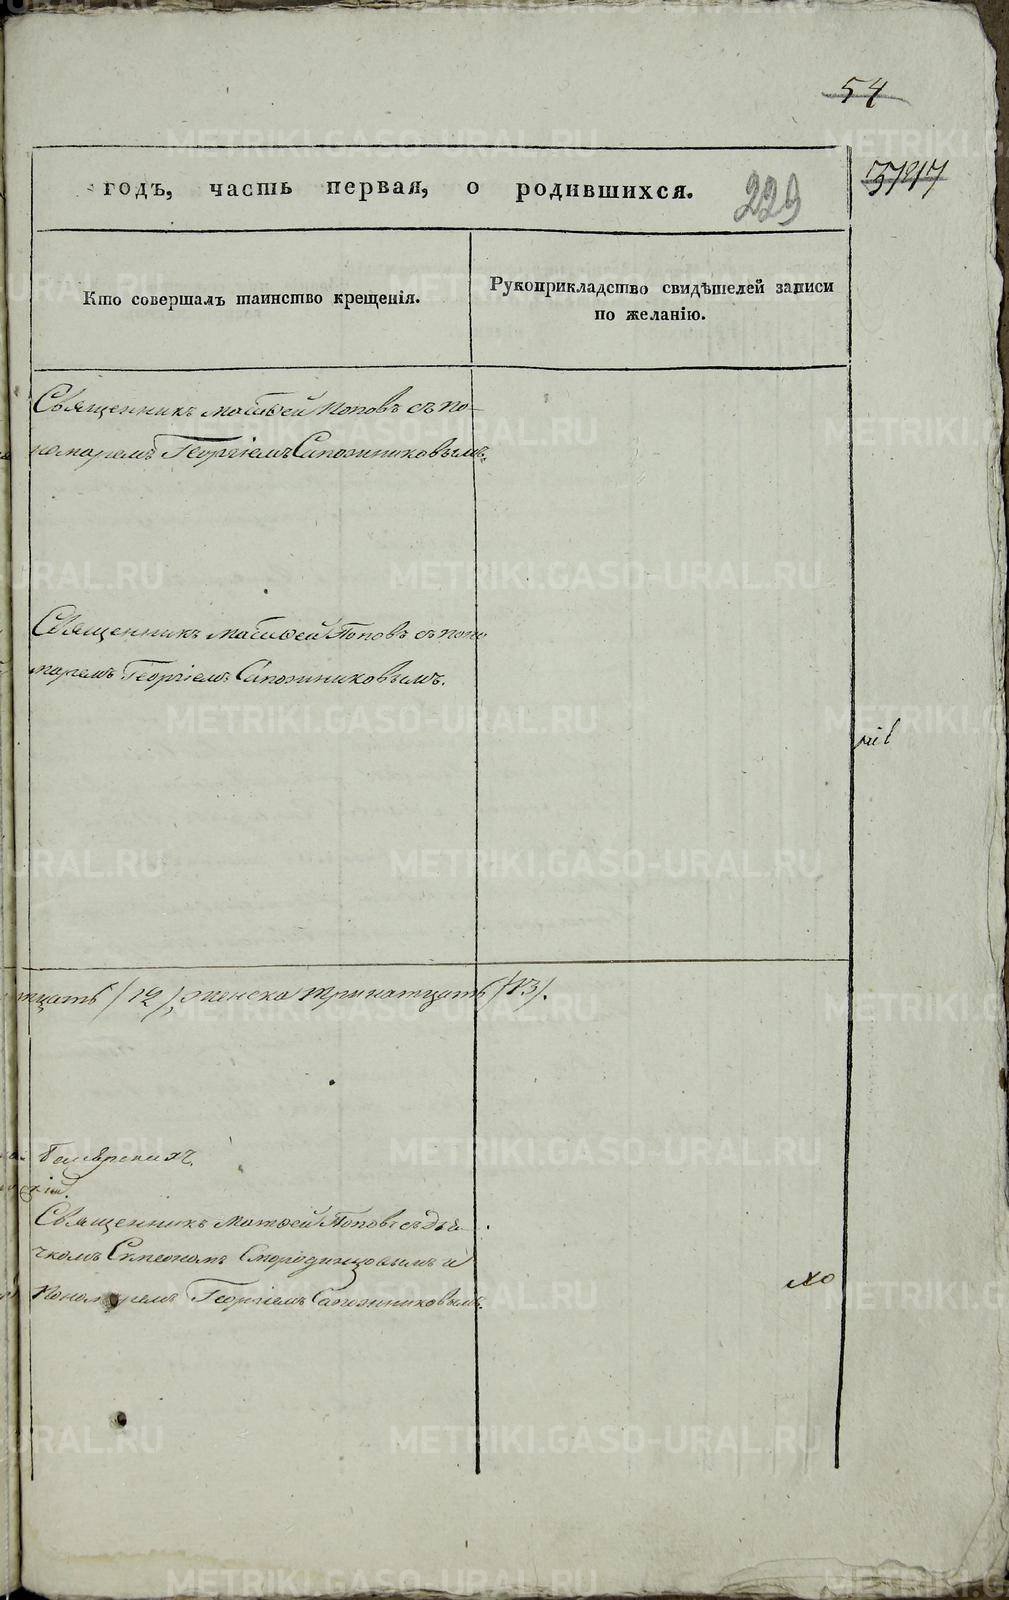 54
годъ, часть первая, о родившихся.
229
Кто совершалъ таинство крещенія.
Рукоприкладство свидѣтелей записи
по желанію.
Священникъ Матѳей Поповъ съ по-
номаремъ Георгіемъ Сапожниковымъ.
Священникъ Матѳей Поповъ съ поно
маремъ Георгіемъ Сапожниковымъ.
тцать /12/, женска тринатцать /13/.
Священникъ Матѳей Поповъ съ дья-
чкомъ Симеономъ Смородинцовымъ и
Пономаремъ Георгіемъ Сапожниковымъ.
METRIKI.GASO-URAL.RU